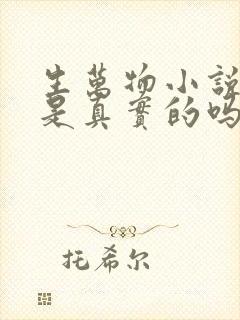 生萬物小說
是真實的嗎
托希尔